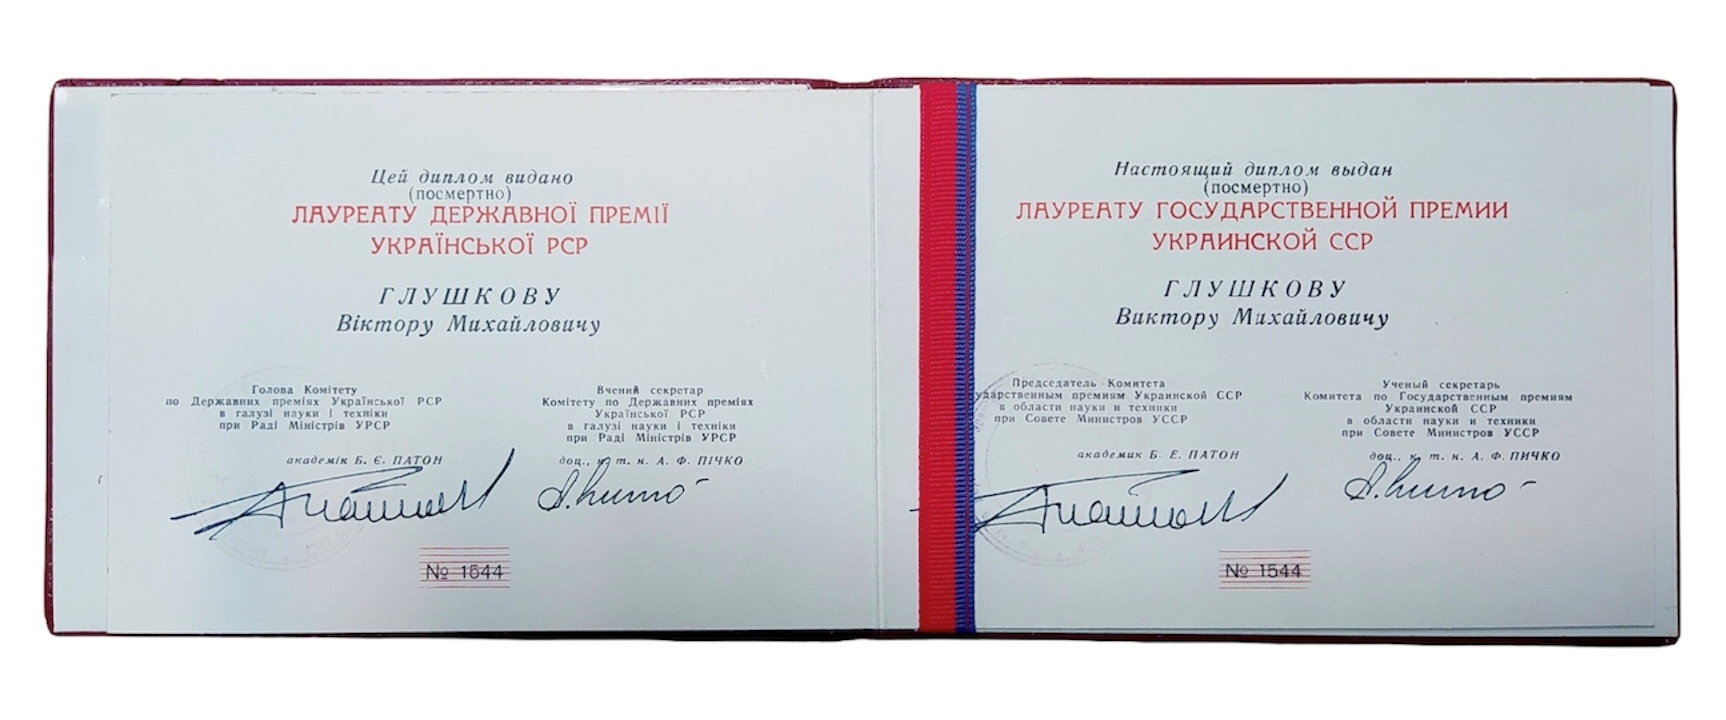 Цей диплом видано
(посмертно)
ЛАУРЕАТУ ДЕРЖАВНОЇ ПРЕМІЇ
УКРАЇНСЬКОЇ РСР
ГЛУШКОВУ
Віктору Михайловичу
Голова Комітету
по Державних преміях Української РСР
в галузі науки і техніки
при Раді Міністрів УРСР
академік Б. Є. ПАТОН
Вчений секретар
Комітету по Державних преміях
Української РСР
в галузі науки і техніки
при Раді Міністрів УРСР
доц., к. т. н. А. Ф. ПІЧКО
№ 1544
Настоящий диплом выдан
(посмертно)
ЛАУРЕАТУ ГОСУДАРСТВЕННОЙ ПРЕМИИ
УКРАИНСКОЙ ССР
ГЛУШКОВУ
Виктору Михайловичу
Председатель Комитета
ударственным премиям Украинской ССР
в области науки и техники
при Совете Министров УССР
академик Б. Е. ПАТОН
Ученый секретарь
Комитета по Государственным премиям
Украинской ССР
в области науки и техники
при Совете Министров УССР
доц., к. т. н. А. Ф. ПИЧКО
№ 1544